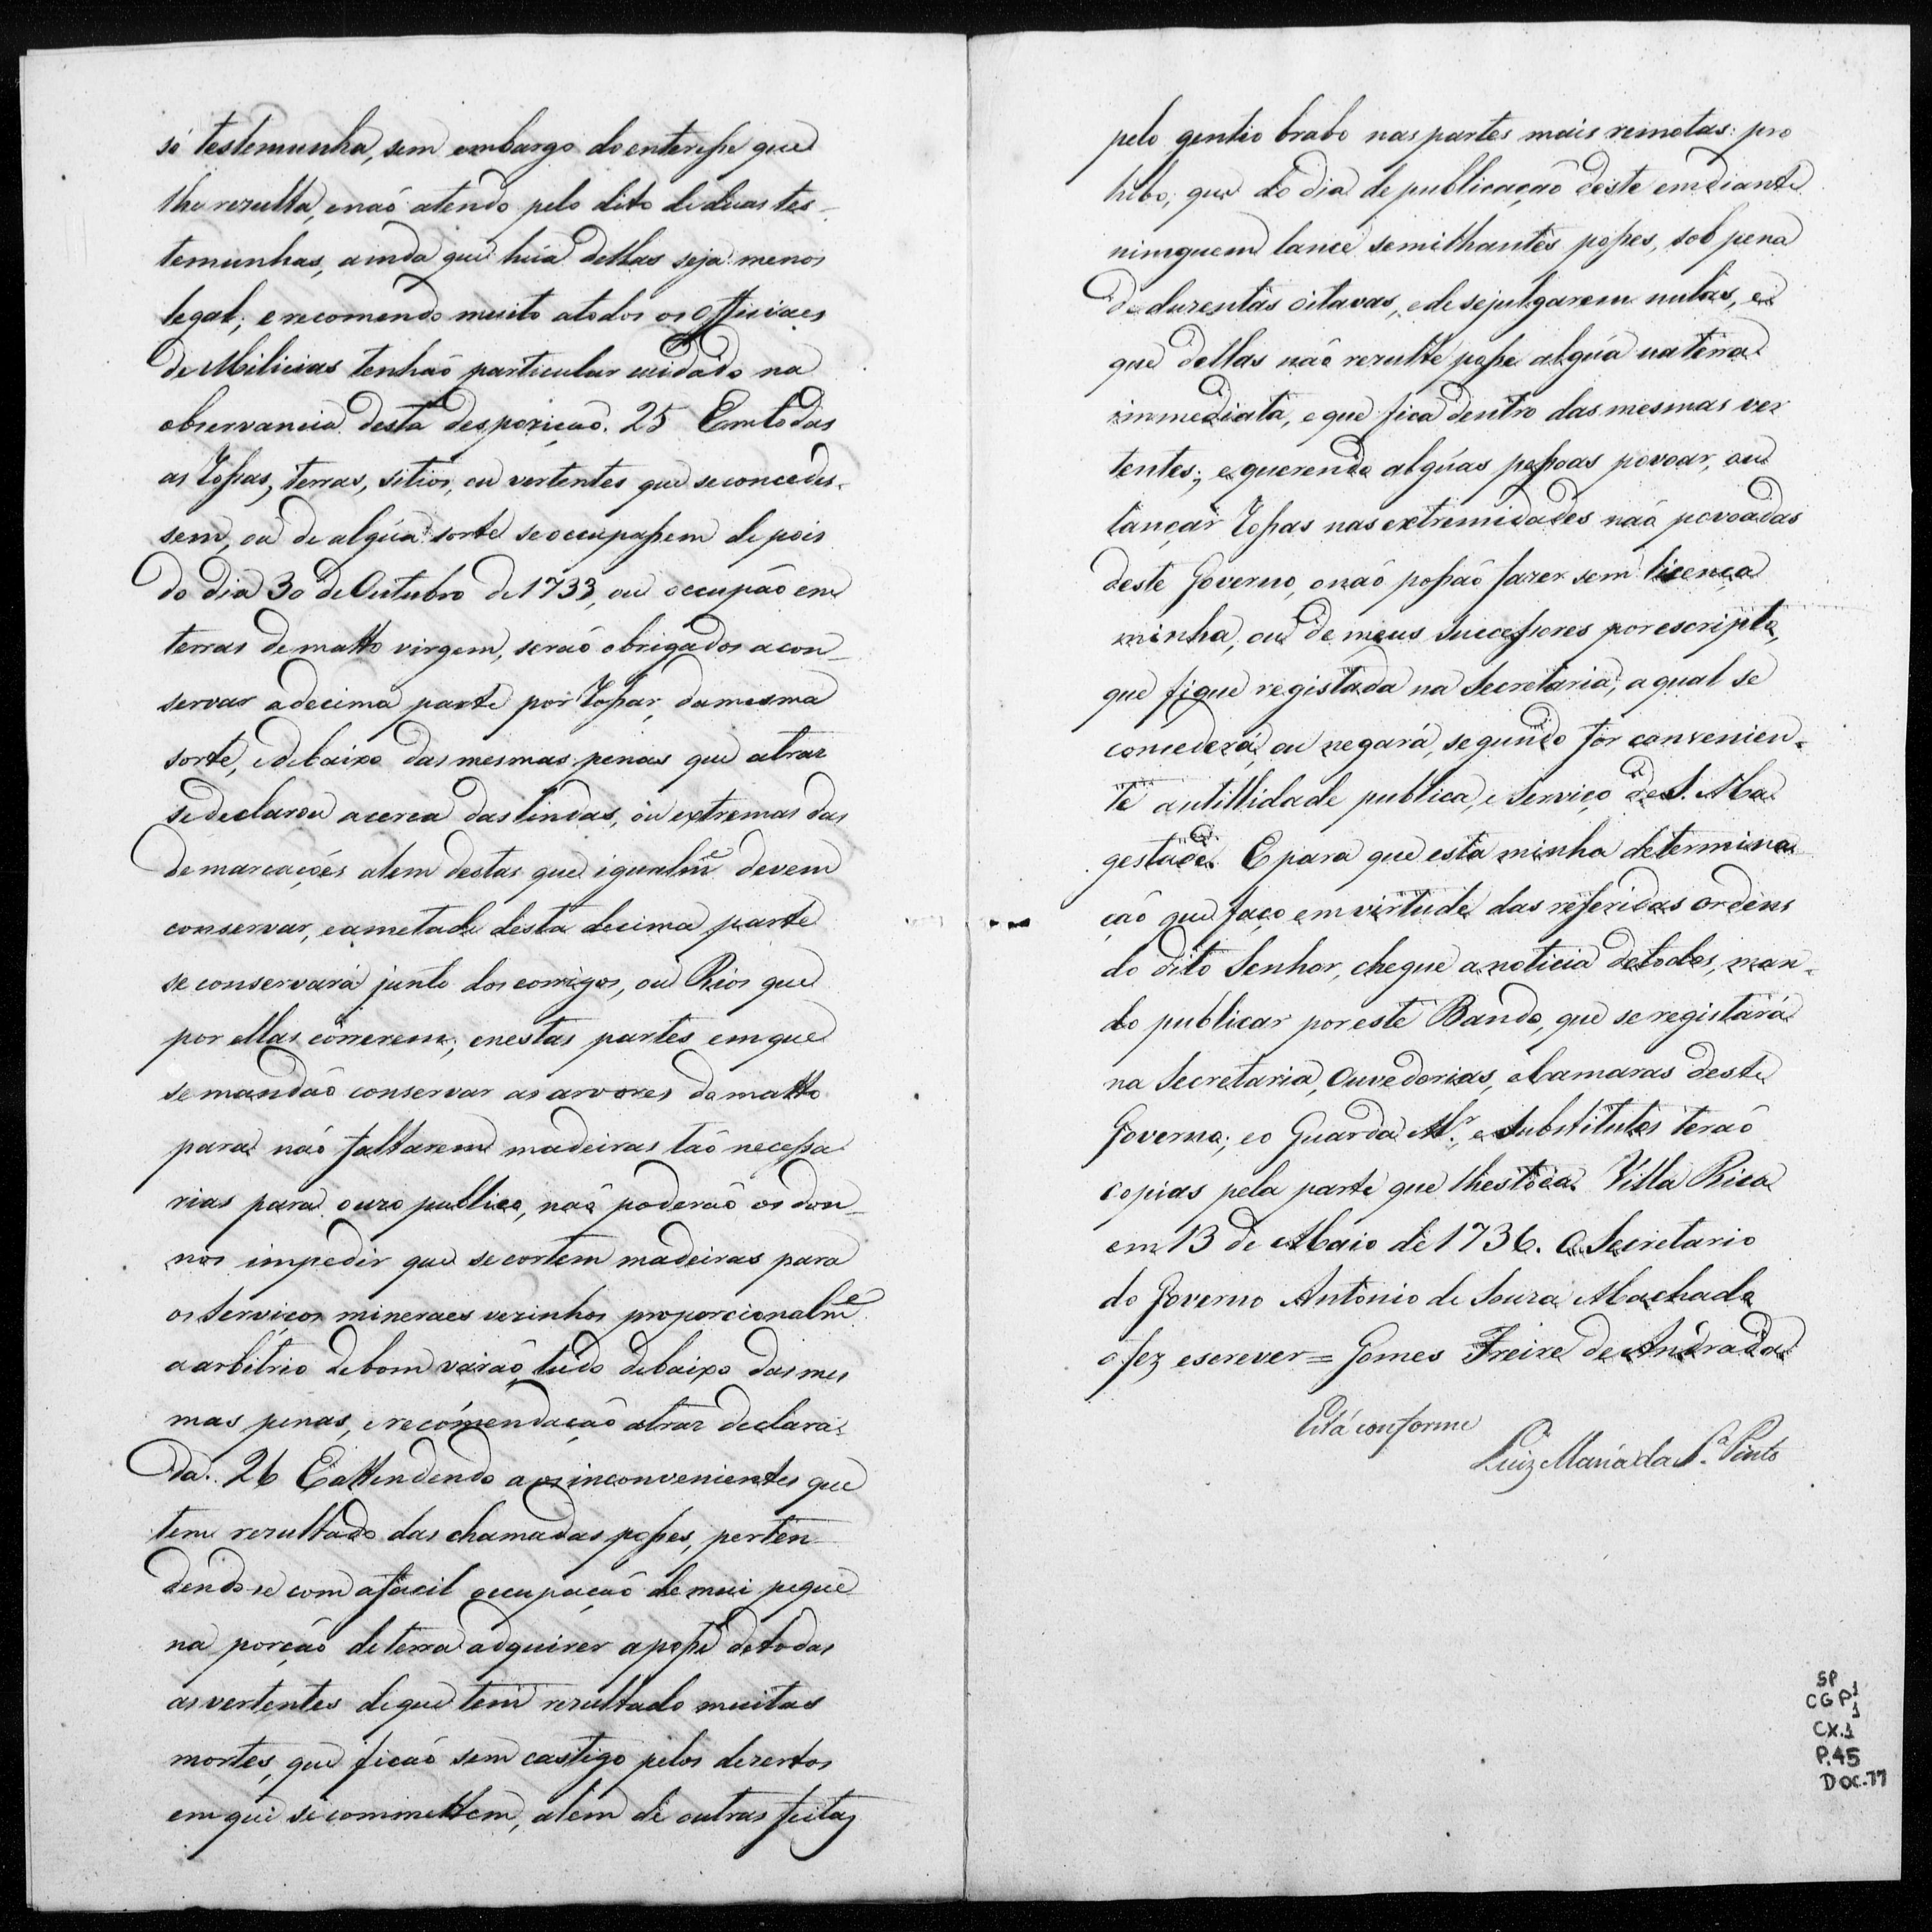 só testemunha, sem embargo do enteresse que
lhe rezulta, enaõ atendo pelo dito de duas tes-
temunhas, ainda que hũa dellas seja menos
legal; erecomendo muito atodos os Officiaes
de Milicias tenhaõ particular cuidado na
observancia desta despoziçaõ. 25 Emtodas
as Rossas, terras, sitios, ou vertentes que seconcedes-
sem, ou de algũa sorte seoccupassem depois
do dia 30 de Outubro de 1733, ou occupaõ em
terras dematto virgem, seraõ obrigados acon-
servar adecima parte por Rossar, damesma
sorte, edebaixo das mesmas penas que atraz
sedeclarou acerca das lindas, ou extremas das
demarcaçoẽs alem destas que igualm.e devem
conservar, eametade desta decima parte
se conservará junto dos corrigos, ou Rios que
por ellas correrem; enestas partes emque
semandaõ conservar as arvores domatto
para naõ faltarem madeiras taõ necessa
rias para ouzo publico, naõ poderaõ os don-
nos impedir que secortem madeiras para
os Serviços mineraes vezinhos proporcionalm.e
aarbitrio debom varaõ, tudo debaixo das mes
mas penas, e recómendaçaõ atraz declara-
da. 26 Eattendendo aos inconvenientes que
tem rezultado das chamadas posses, perten-
dendose com afacil occupaçaõ de mui peque
na porçaõ deterra adquirer aposse detodas
as vertentes deque tem rezultado muitas
mortes, que ficaõ sem castigo pelos dezertos
emque secommettem, alem de outras feitas
pelo gentio brabo nas partes mais remotas: pro
hibo, que do dia de publicaçaõ deste emdiante
nimguem lance semilhantes posses, sob pena
de duzentas oitavas, ede sejulgarem nulas, e
que dellas naõ rezulte posse algũa naterra
immediata, eque fica dentro das mesmas ver
tentes; equerendo algũas pessoas povoar, ou
lançar Rossas nas extremidades naõ povoadas
deste Governo, onaõ possaõ fazer sem licença
minha, ou de meus Successores por escripto,
que fique registada na Secretaria; aqual se
concederá, ou negará, segundo for convenien-
te autillidade publica, e Serviço de S. Ma
gestade. E para que esta minha determina
çaõ que faço em virtude das referidas ordens
do dito Senhor, chegue anoticia detodos, man-
do publicar por este Bando, que se registará
na Secretaria, Ouvedorias, eCamaras deste
Governo; eo Guarda M.r, e Substitutos teraõ
copias pela parte que lhestoca. Villa Rica
em 13 de Maio de 1736. O Secretario
do Governo Antonio de Souza Machado
o fez escrever = Gomes Freire de Andrada
Está conforme
Luiz Maria da S.a Pinto
SP
CGP1
1
CX.1
P.45
DOC.77